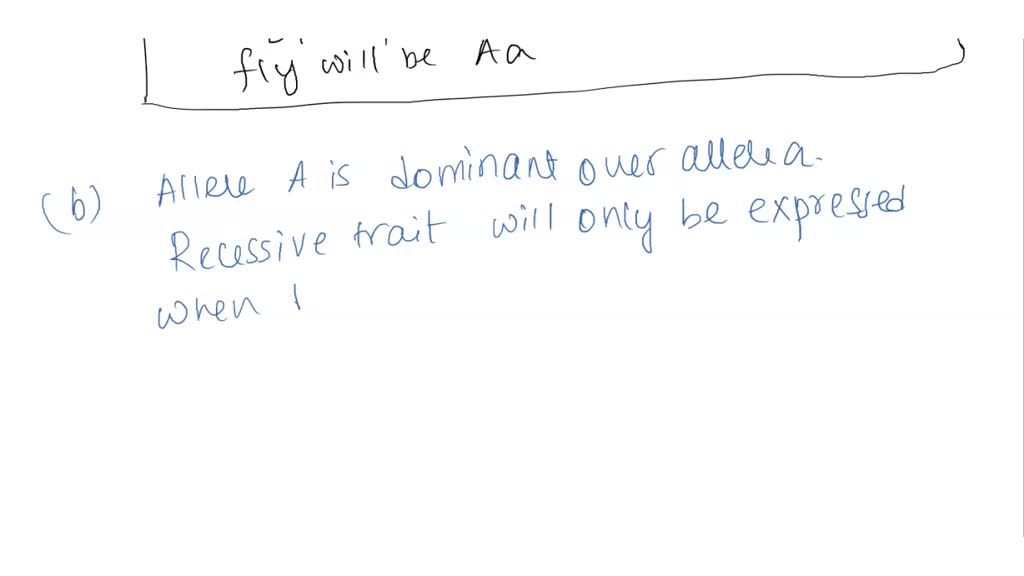 fly will be Aa
(b) Allele A is dominant over allele a.
Recessive trait will only be expressed
when